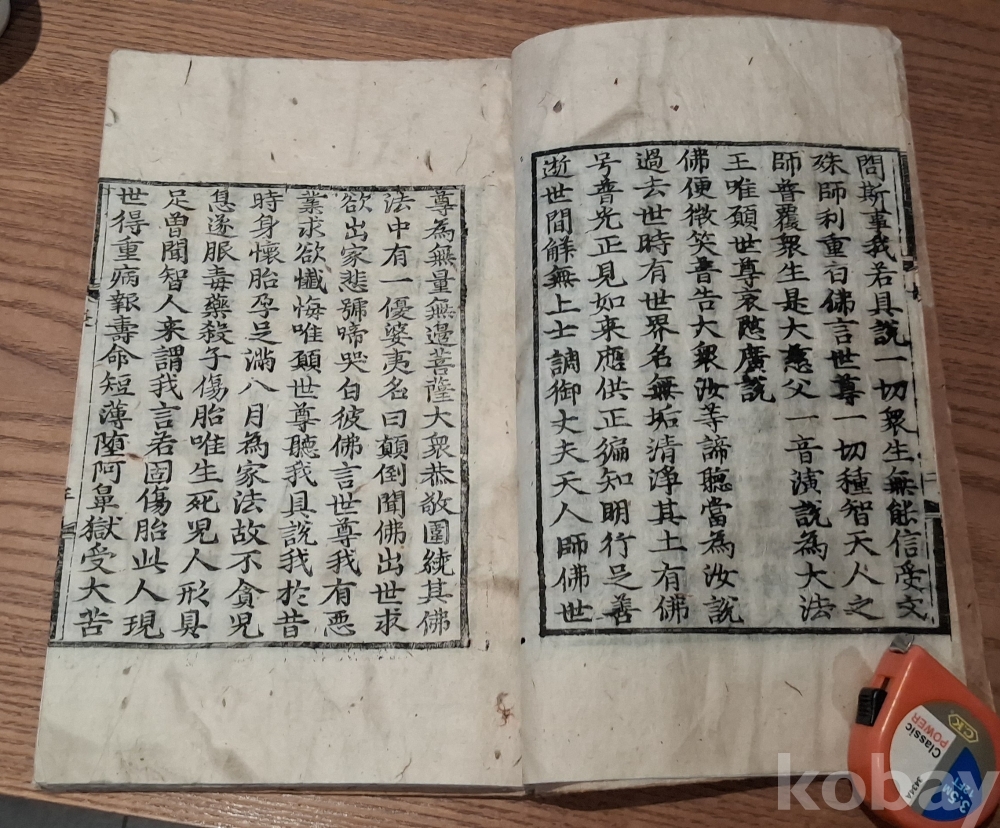 問斯事我若具說一切衆生無能信受文
殊師利重白佛言世尊一切種智天人之
師普覆衆生是大慈父一音演說為大法
王唯願世尊哀愍廣說
佛便微笑普告大衆汝等諦聽當為汝說
過去世時有世界名無垢清淨其土有佛
号普光正見如来應供正徧知明行足善
逝世間解無上士調御丈夫天人師佛世
尊為無量無邉菩薩大衆恭敬圍繞其佛
法中有一優婆夷名曰顛倒聞佛出世求
欲出家悲號啼哭白彼佛言世尊我有悪
業求欲懺悔唯願世尊聽我具說我於昔
時身懷胎孕足滿八月為家法故不貪児
息遂服毒藥殺子傷胎唯生死児人形具
足曾聞智人来謂我言若固傷胎此人現
世得重病報壽命短薄堕阿鼻獄受大苦
二
三
Classic
POWER
CK
3.5M
12FT
kobay